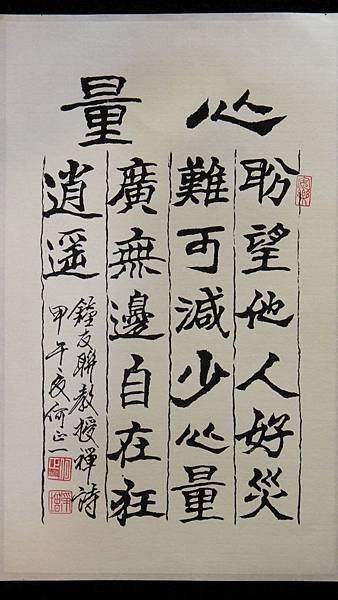 心量
盼望他人好災
難可減少心量
廣無邊自在狂
逍遥
鐘友聯教授禪詩
甲午夏何正一